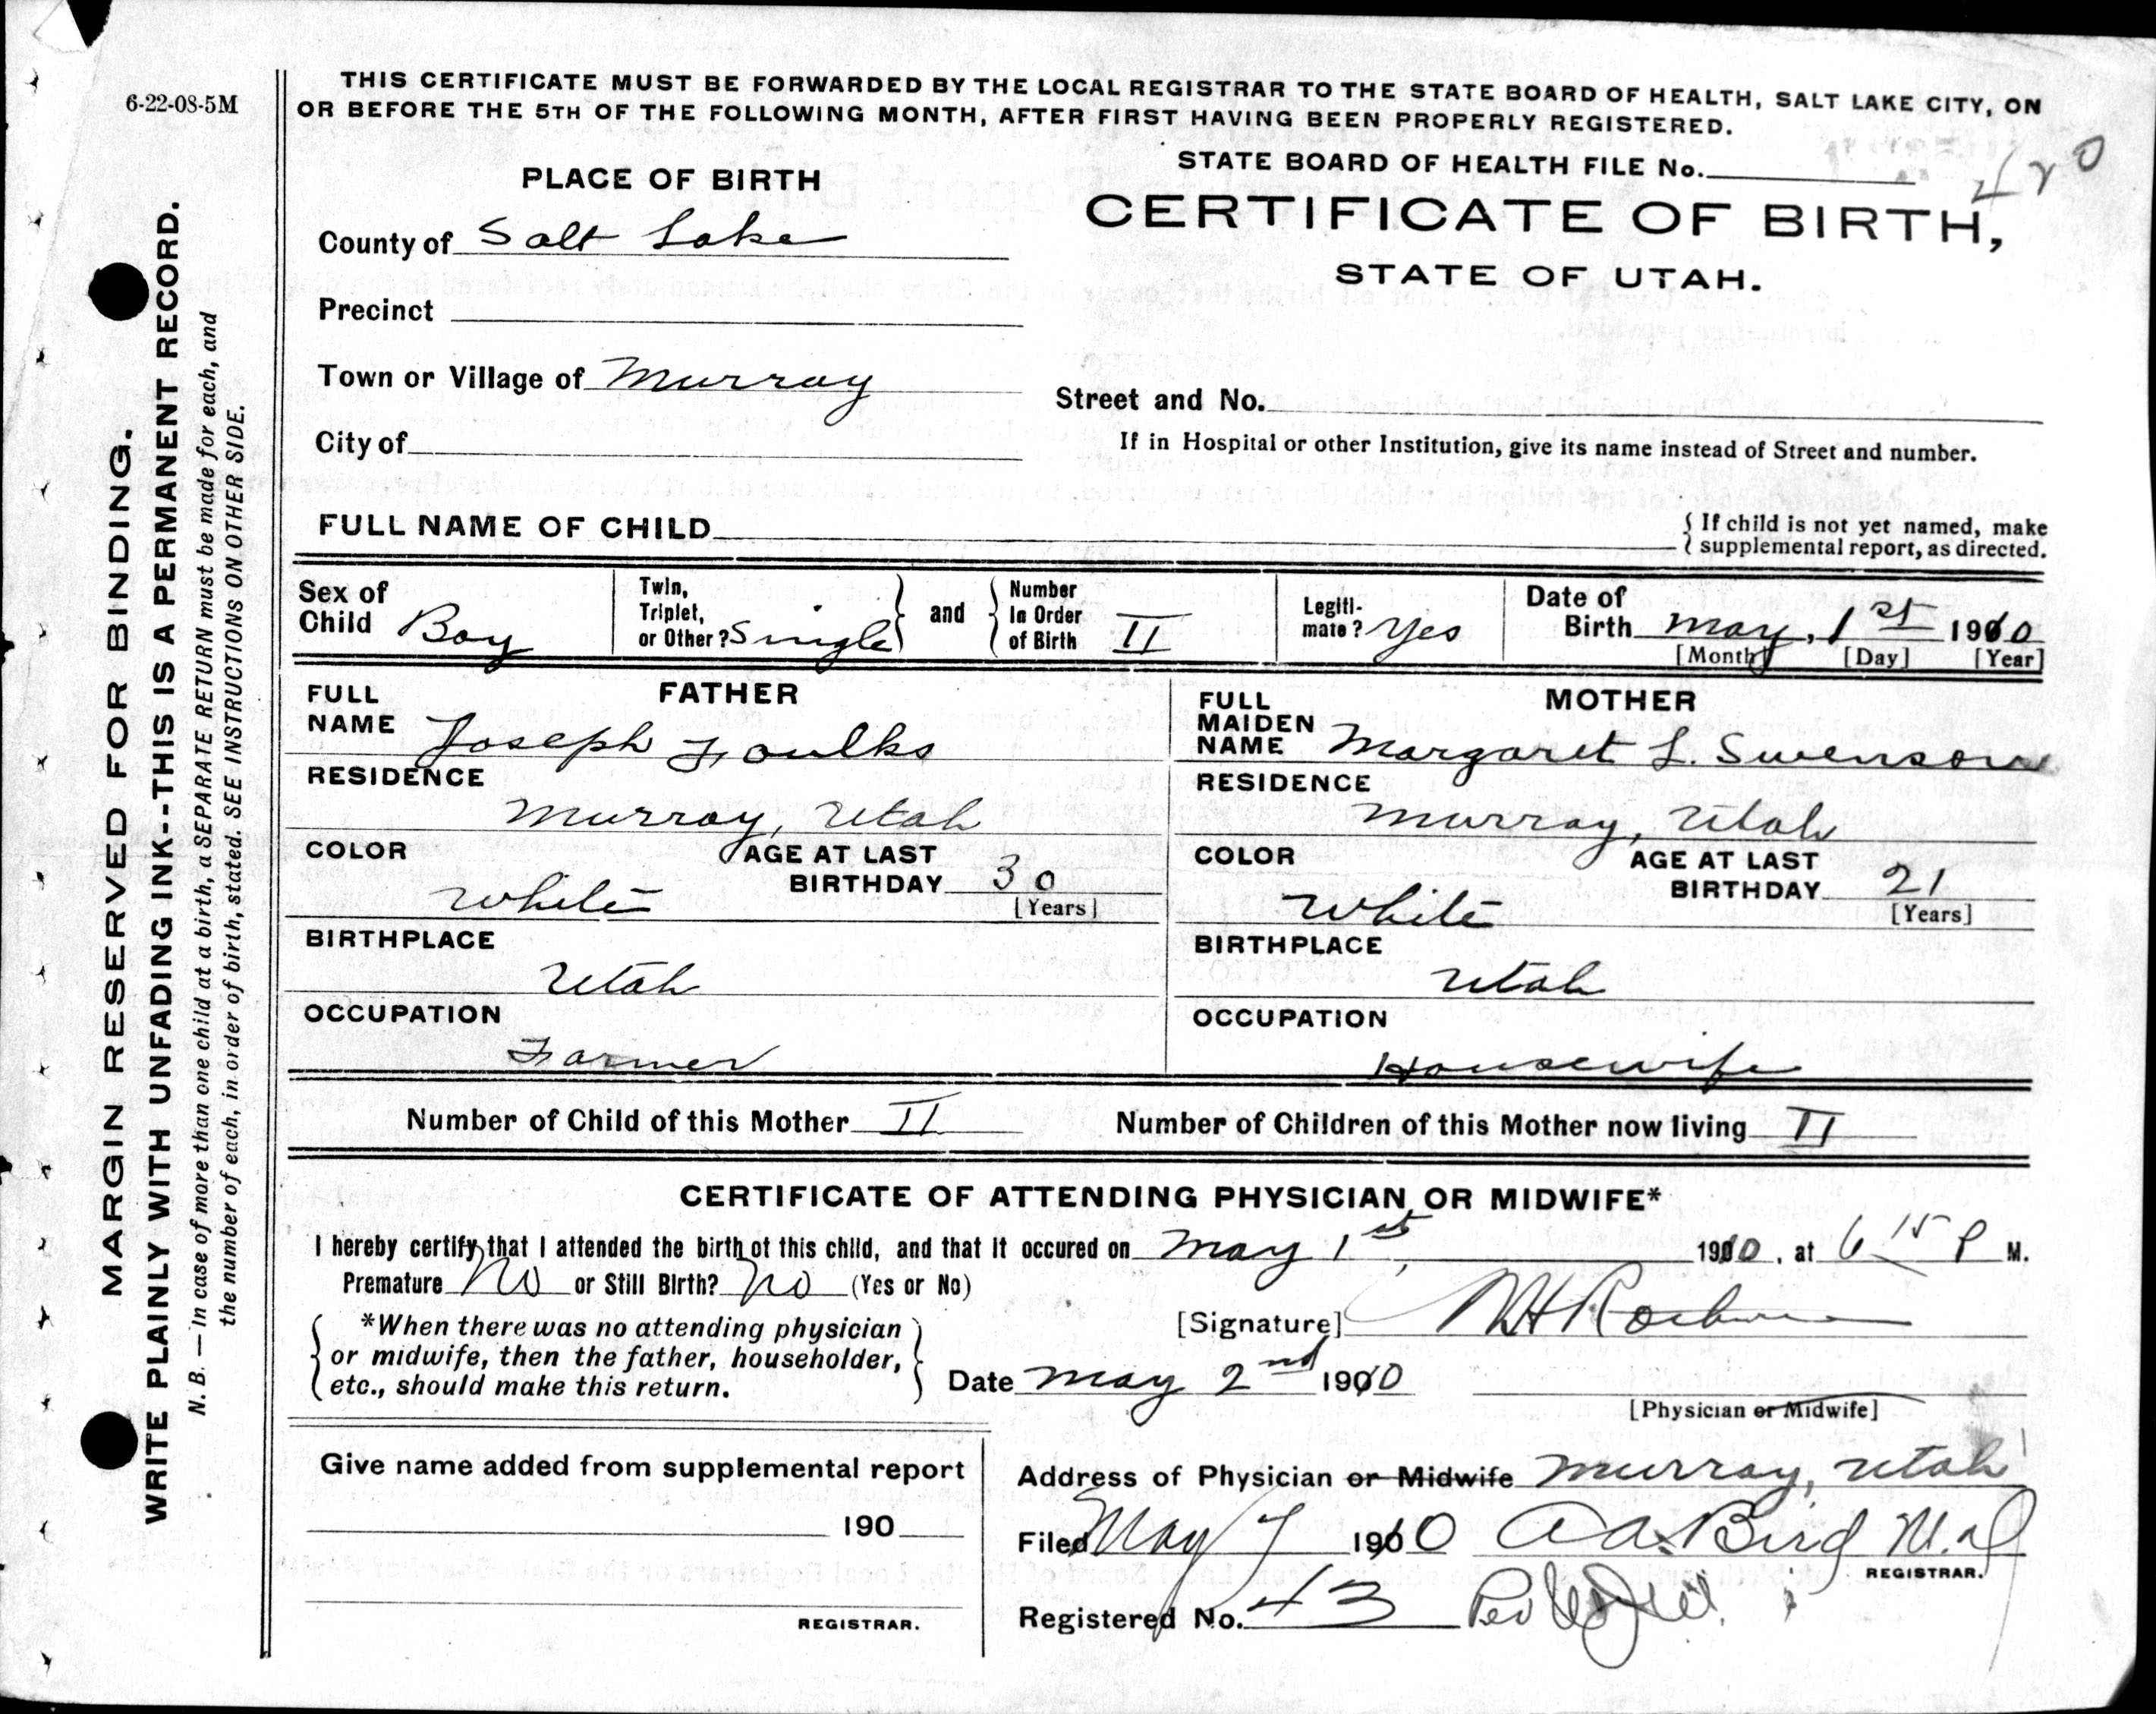 6-22-08-5M
THIS CERTIFICATE MUST BE FORWARDED BY THE LOCAL REGISTRAR TO THE STATE BOARD OF HEALTH, SALT LAKE CITY, ON
OR BEFORE THE 5TH OF THE FOLLOWING MONTH, AFTER FIRST HAVING BEEN PROPERLY REGISTERED.
MARGIN RESERVED FOR BINDING.
WRITE PLAINLY WITH UNFADING INK--THIS IS A PERMANENT RECORD.
N. B. —In case of more than one child at a birth, a SEPARATE RETURN must be made for each, and
the number of each, in order of birth, stated. SEE INSTRUCTIONS ON OTHER SIDE.
STATE BOARD OF HEALTH FILE No.
420
CERTIFICATE OF BIRTH,
STATE OF UTAH.
PLACE OF BIRTH
County of Salt Lake
Precinct
Town or Village of Murray
Street and No.
City of
If in Hospital or other Institution, give its name instead of Street and number.
FULL NAME OF CHILD
{ If child is not yet named, make
supplemental report, as directed.
Sex of Child Boy
Twin, Triplet, or Other? Single } and { Number In Order of Birth II
Legiti-mate? Yes
Date of Birth May, 1st 1910
[Month] [Day] [Year]
FATHER
FULL NAME Joseph Foulks
RESIDENCE
Murray, Utah
COLOR
White
AGE AT LAST BIRTHDAY 30
[Years]
BIRTHPLACE
Utah
OCCUPATION
Farmer
MOTHER
FULL MAIDEN NAME Margaret L. Swenson
RESIDENCE
Murray, Utah
COLOR
White
AGE AT LAST BIRTHDAY 21
[Years]
BIRTHPLACE
Utah
OCCUPATION
Housewife
Number of Child of this Mother II
Number of Children of this Mother now living II
CERTIFICATE OF ATTENDING PHYSICIAN OR MIDWIFE*
I hereby certify that I attended the birth of this child, and that it occured on May 1st, 1910, at 6 15 P M.
Premature No or Still Birth? No (Yes or No)
*When there was no attending physician
or midwife, then the father, householder,
etc., should make this return.
[Signature]
Date May 2nd 1910
[Physician or Midwife]
Give name added from supplemental report
190
REGISTRAR.
Address of Physician or Midwife Murray, Utah
Filed May 7 1910 A. A. Bird M.D
REGISTRAR.
Registered No. 43